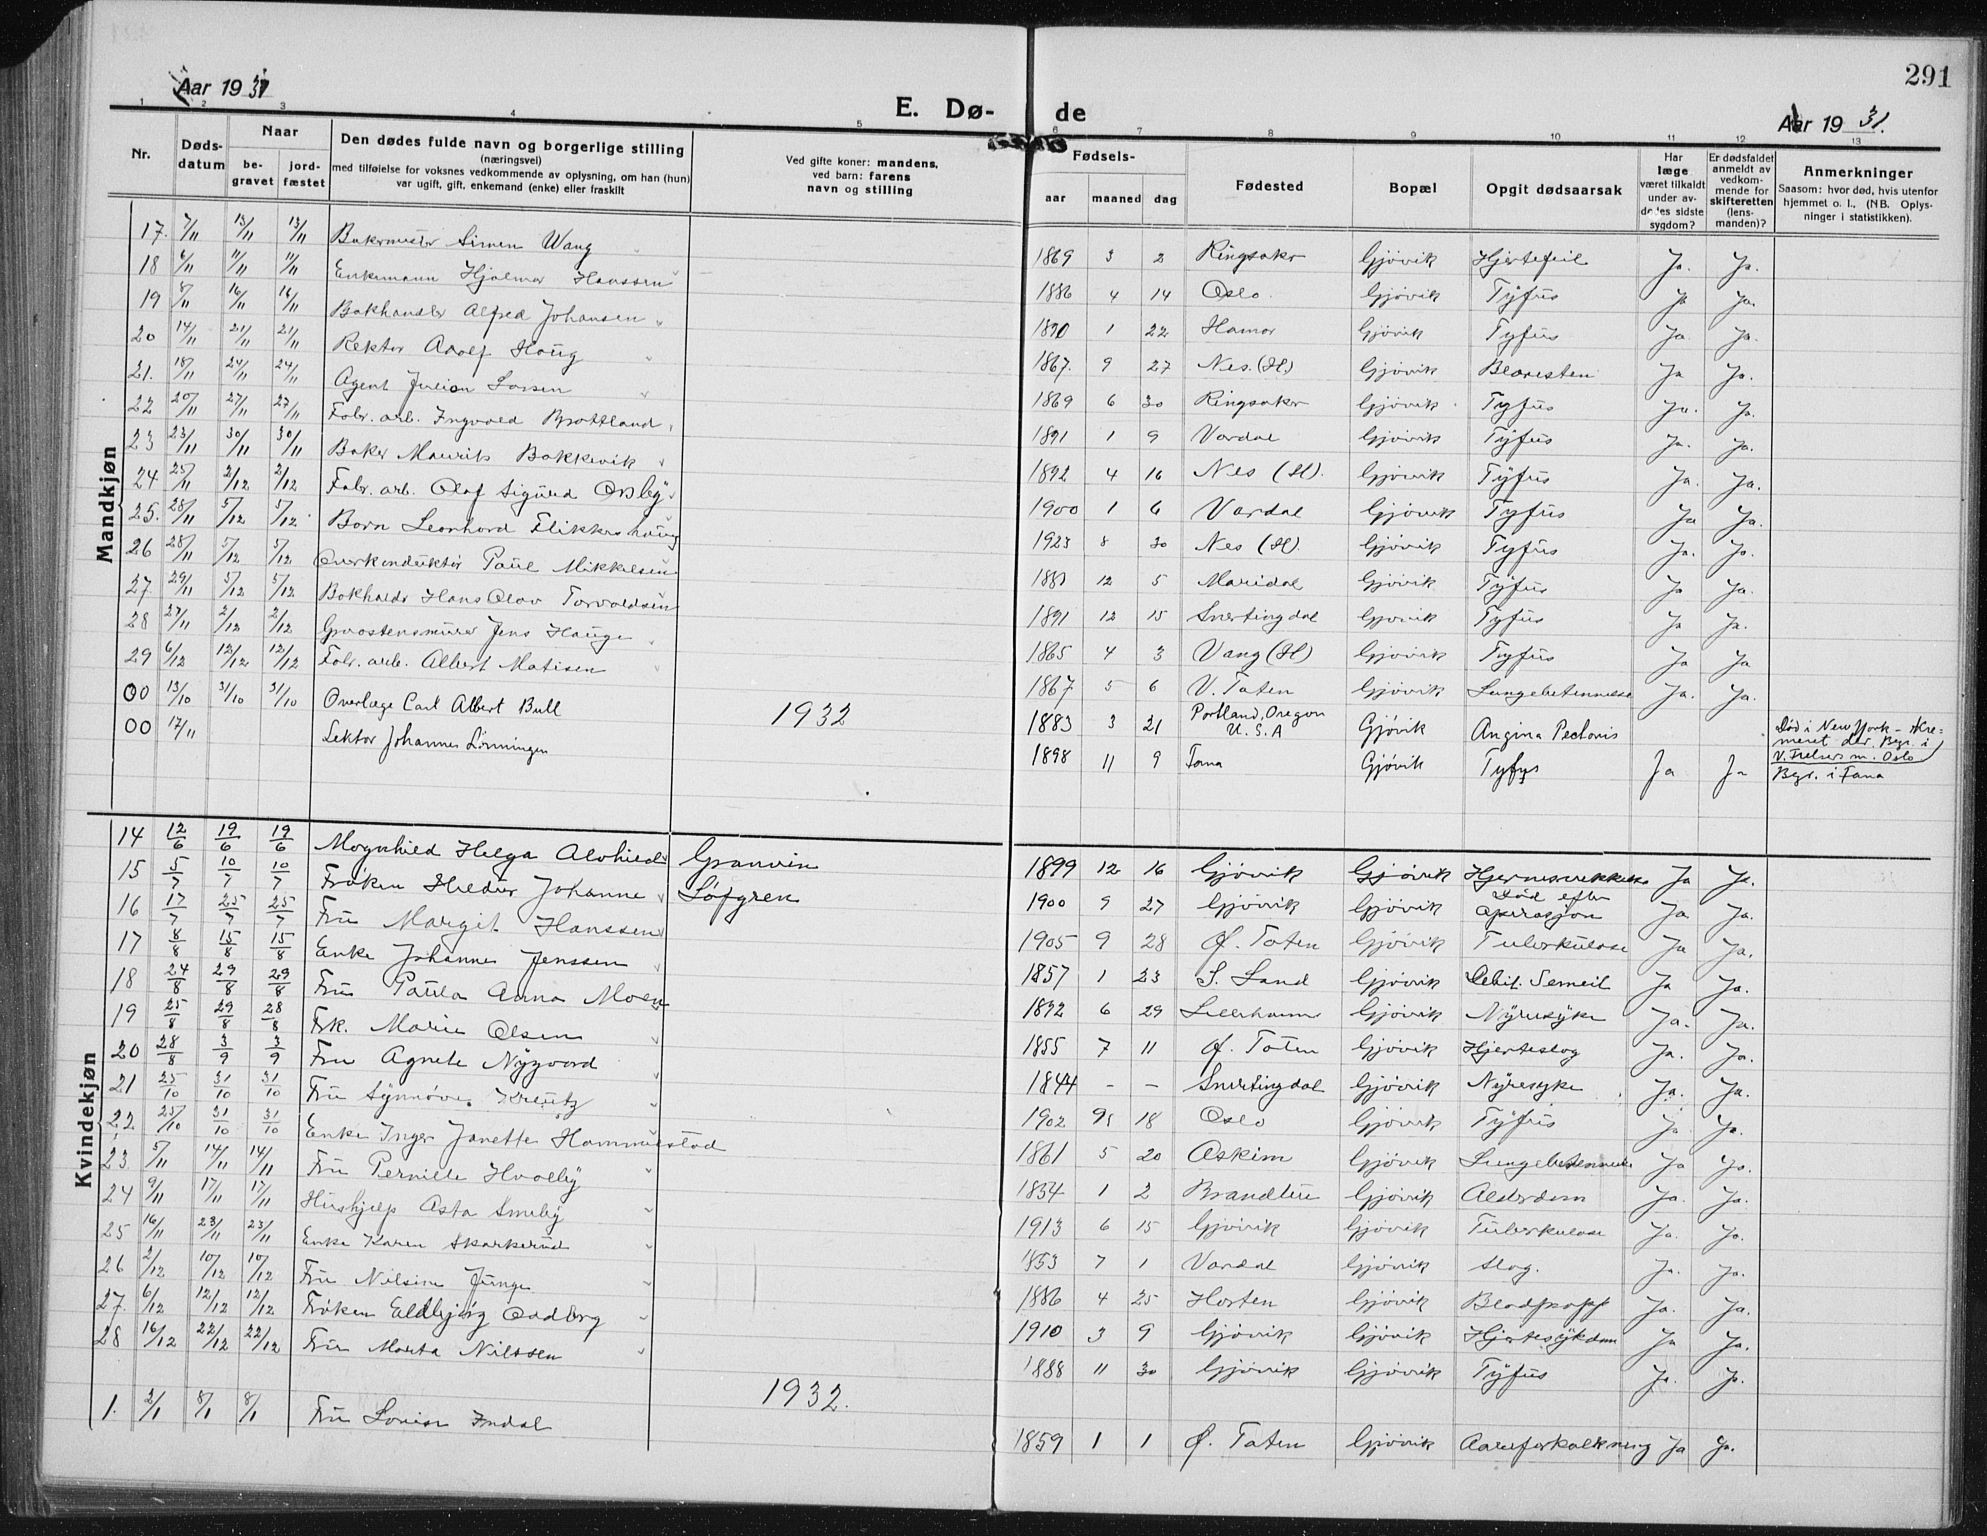 291
Aar 1931
E. Dø- de
Aar 19 31.
1 2 3 4 5 6 7 8 9 10 11 12 13
Nr. Døds-datum Naar be-gravet jord-fæstet
Den dødes fulde navn og borgerlige stilling
(næringsvei)
med tilføielse for voksnes vedkommende av oplysning, om han (hun)
var ugift, gift, enkemand (enke) eller fraskilt
Ved gifte koner: mandens,
ved barn: farens
navn og stilling
Fødsels- aar maaned dag
Fødested
Bopæl
Opgit dødsaarsak
Har læge været tilkaldt under av-dødes sidste sygdom?
Er dødsfaldet anmeldt av vedkom-mende for skifteretten (lens-manden)?
Anmerkninger
Saasom: hvor død, hvis utenfor
hjemmet o. l., (NB. Oplys-
ninger i statistikken).
Mandkjøn
17. 7/11 13/11 13/11 Bakermester Simen Wang 1869 3 2 Ringsaker Gjøvik Hjertefeil Ja. Ja.
18 6/11 11/11 11/11 Enkemann Hjalmar Hanssen 1886 4 14 Oslo. Gjøvik Tyfus Ja Ja.
19 8/11 16/11 16/11 Bokhandler Alfred Johansen 1890 1 22 Hamar Gjøvik Tyfus Ja Ja.
20 14/11 21/11 21/11 Rektor Adolf Haug 1867. 9 27 Nes. (H.) Gjøvik Blæresten Ja Ja.
21. 18/11 24/11 24/11 Agent Julian Larsen 1869 6 30 Ringsaker Gjøvik Tyfus Ja. Ja.
22 20/11 27/11 27/11 Fabr. arb. Ingvald Brottland 1891 1 9 Vardal Gjøvik Tyfus Ja. Ja.
23 23/11 30/11 30/11 Baker Maurits Bakkevik 1892 4 16 Nes (H). Gjøvik Tyfus Ja. Ja.
24 25/11 2/12 2/12 Fabr. arb. Olaf Sigurd Osby 1900 1 6 Vardal Gjøvik Tyfus Ja Ja.
25. 28/11 5/12 5/12. Barn Leonhard Flikkershaug 1923 8 30 Nes (H). Gjøvik Tyfus Ja. Ja.
26 28/11 5/12 5/12 Overkonduktør Paul Mikkelsen 1881 12 5 Maridal Gjøvik Tyfus Ja Ja.
27. 29/11 5/12 5/12 Bokholdr Hans Olav Torvaldsen 1891 12 15 Snertingdal Gjøvik Tyfus Ja Ja.
28 27/11 2/12 2/12 Graastensmurer Jens Hauge 1865 4 3 Vang (H) Gjøvik Tyfus Ja Ja
29 6/12 12/12 12/12 Fabr. arb. Albert Matisen 1867. 5 6 V. Toten Gjøvik Lungebetennelse Ja. Ja.
00 13/10 31/10 31/10 Overlæge Carl Albert Bull 1932 1883 3 21 Portland, Oregon U.S.A Gjøvik Angina Pectoris Død i New York - Kre-
meret der. Begr. i
V. Frelsers m. Oslo
00 17/11 Lektor Johannes Lønningen 1898 11 9 Fana Gjøvik Tyfys Ja Ja Begr. i Fana
Kvindekjøn
14 12/6 19/6 19/6 Magnhild Helga Alvhild Granvin 1899 12 16 Gjøvik Gjøvik Hjernesvekkelse Ja Ja.
15 5/7 10/7 10/7 Frøken Hredur Johanne Løfgren 1900 9 27 Gjøvik Gjøvik Død efter operasjon Ja Ja.
16 17/7 25/7 25/7 Fru Margit Hanssen 1905 9 28 Ø. Toten Gjøvik Tuberkulose Ja Ja.
17 8/8 15/8 15/8 Enke Johanne Jenssen 1857 1 23 S. Land Gjøvik Debil. Seneil Ja Ja.
18 24/8 29/8 29/8 Fru Paula Anna Moen 1892 6 29 Lillehammer Gjøvik Nyresyke Ja. Ja.
19 25/8 29/8 28/8 Frk. Marie Olsen 1855 7 11 Ø. Toten Gjøvik Hjerteslag Ja. Ja.
20 28/8 3/9 3/9 Fru Agnete Nygaard 1844 - - Snertingdal Gjøvik Nyresyke Ja. Ja.
21 25/10 31/10 31/10 Fru Synnøve Kreutz 1902 9 18 Oslo Gjøvik Tyfus Ja Ja.
22 25/10 31/10 31/10 Enke Inger Janette Hammerstad 1861 5 20 Askim Gjøvik Lungebetennelse Ja Ja.
23. 5/11 14/11 14/11 Fru Pernille Hvalby 1834 1 2 Brandbu Gjøvik Alderdom Ja. Ja.
24 9/11 17/11 17/11 Hushjelp Asta Smeby 1913 6 15 Gjøvik Gjøvik Tuberkulose Ja. Ja.
25 16/11 23/11 23/11 Enke Karen Skarkerud 1853 7 1 Vardal Gjøvik Slag. Ja. Ja.
26 2/12 10/12 10/12 Fru Nilsine Junge 1886 4 25 Horten Gjøvik Blodpropp Ja. Ja.
27. 6/12 12/12 12/12 Frøken Eldbjørg Oddberg 1910 3 9 Gjøvik Gjøvik Hjertesykdom Ja Ja.
28 16/12 22/12 22/12 Fru Marta Nilssen 1888 11 30 Gjøvik Gjøvik Tyfus Ja. Ja.
1932.
1. 2/1 8/1 8/1 Fru Lovise Indal 1859 1 1 Ø. Toten Gjøvik Aareforkalkning Ja Ja.